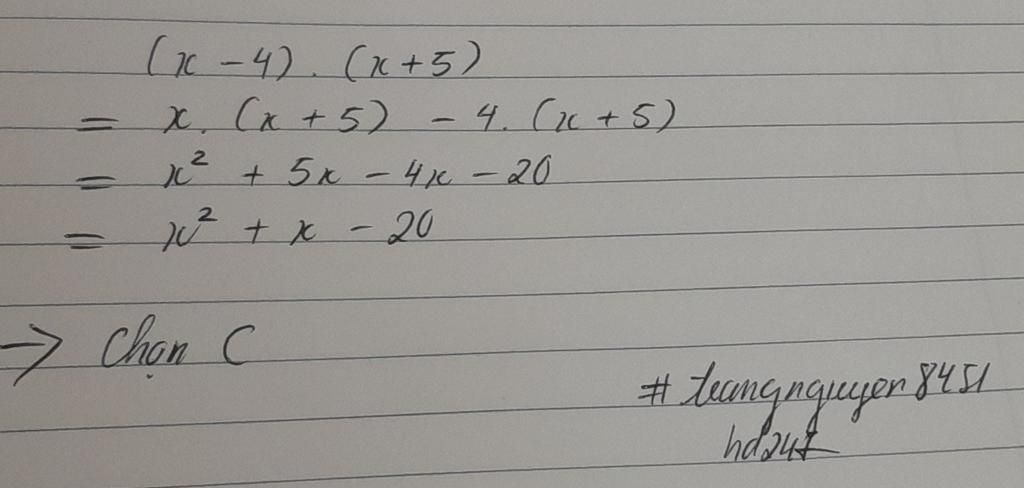 (x - 4) . (x + 5)
= x. (x + 5) - 4. (x + 5)
= x² + 5x - 4x - 20
= x² + x - 20
→ Chọn C
# trangnguyen8451
hd247